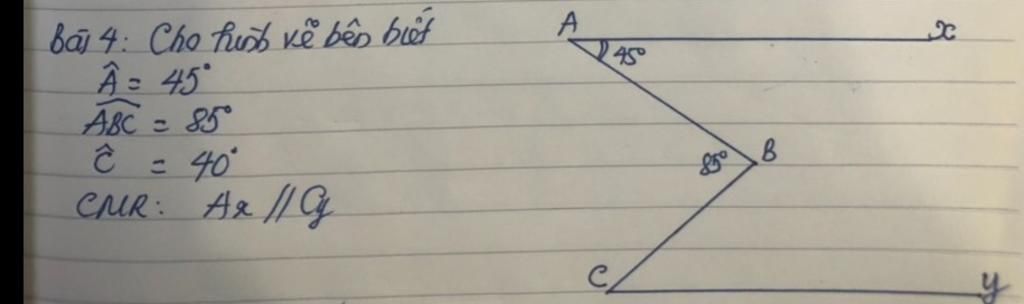 Bài 4: Cho hình vẽ bên biết
Â = 45°
ABC = 85°
Ĉ = 40°
CMR: Ax // Cy
A
x
45°
85°
B
C
y